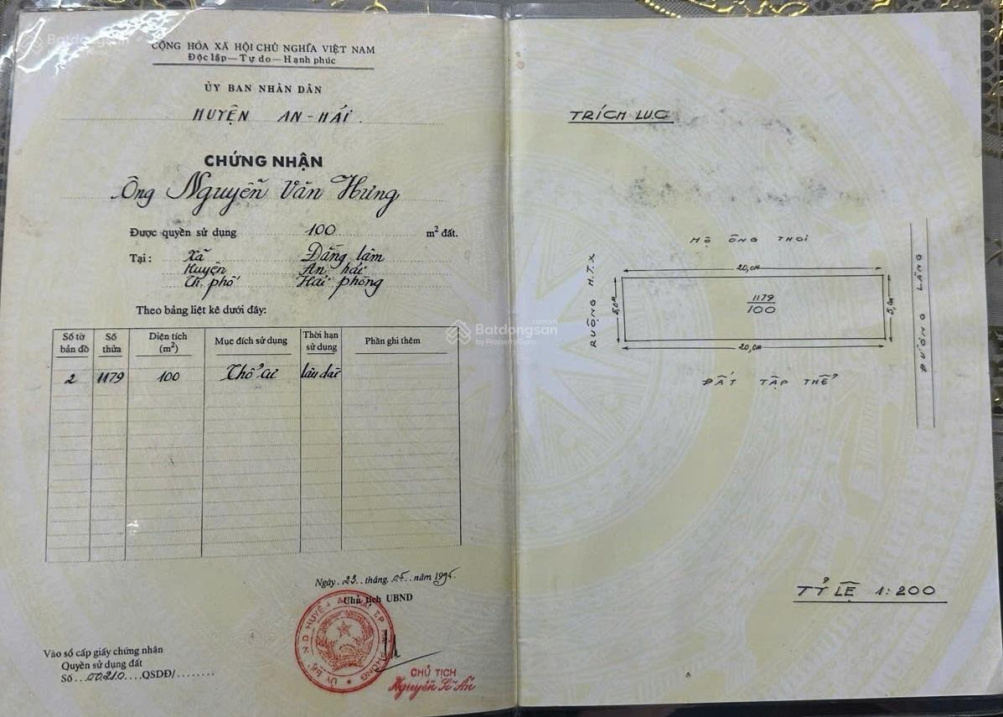 CỘNG HÒA XÃ HỘI CHỦ NGHĨA VIỆT NAM
Độc lập—Tự do—Hạnh phúc
ỦY BAN NHÂN DÂN
HUYỆN AN-HẢI
CHỨNG NHẬN
Ông Nguyễn Văn Hưng
Được quyền sử dụng 100 m² đất.
Tại: Xã Đằng lâm
Huyện An hải
Th. phố Hải phòng
Theo bảng liệt kê dưới đây:
Số tờ bản đồ Số thửa Diện tích (m²) Mục đích sử dụng Thời hạn sử dụng Phần ghi thêm
2 1179 100 Thổ cư lâu dài
Ngày 23 tháng 05 năm
Chủ tịch UBND
CHỦ TỊCH
Nguyễn Sĩ
Vào sổ cấp giấy chứng nhận
Quyền sử dụng đất
Số 00210 QSDĐ/
TRÍCH LỤC
HỘ ÔNG THOI
20,0m
RUỘNG H.T.X
5,0m
1179
100
5,0m
ĐƯỜNG LÀNG
20,0m
ĐẤT TẬP THỂ
TỶ LỆ 1:200
Batdongsan
by PropertyGuru
Batdongsan